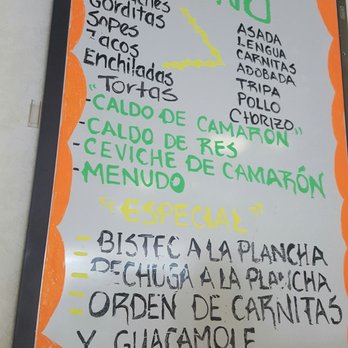 Gorditas
Sopes
Tacos
Enchiladas
Tortas
ASADA
LENGUA
CARNITAS
ADOBADA
TRIPA
POLLO
CHORIZO
"
-CALDO DE CAMARÓN"
-CALDO DE RES
-CEVICHE DE CAMARÓN
-MENUDO
"ESPECIAL"
- BISTEC A LA PLANCHA
- PECHUGA A LA PLANCHA
- ORDEN DE CARNITAS
Y GUACAMOLE